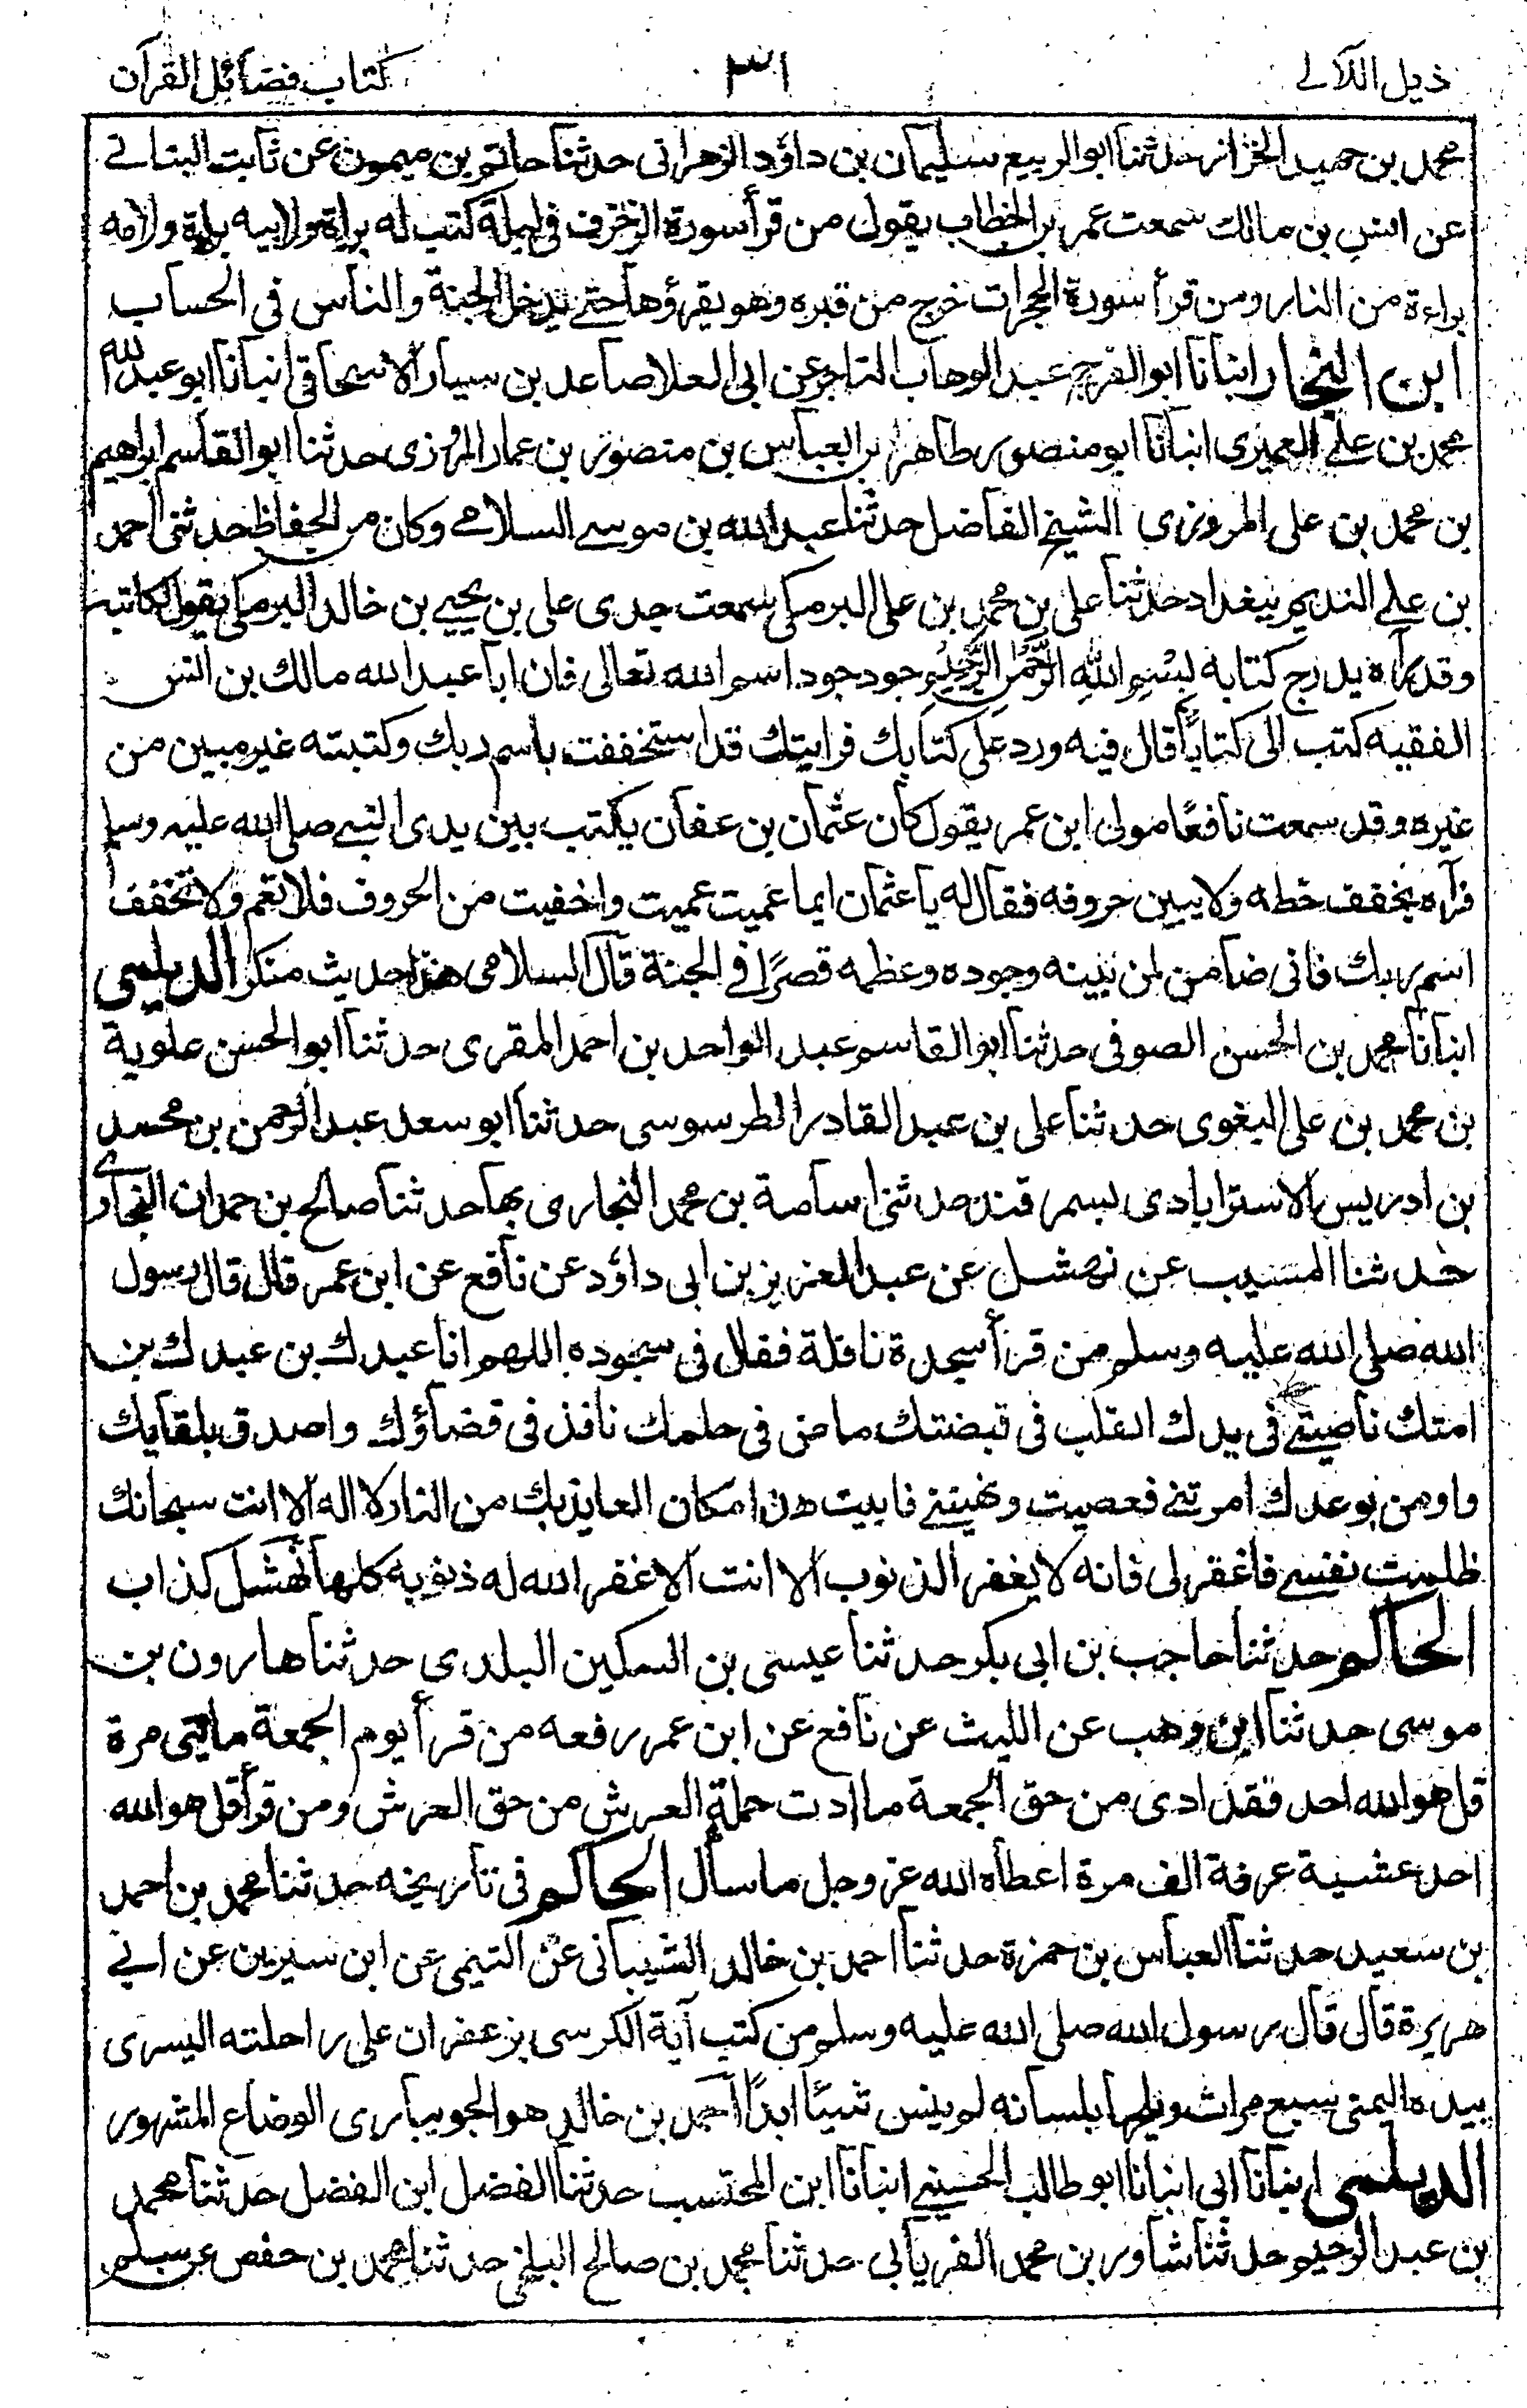 ذيل اللآلے ٣١ كتاب فضائل القرآن
محمد بن حميد الخزاز حدثنا ابو الربيع سليمان بن داؤد الزهراني حدثنا حاتم بن ميمون عن ثابت البنانے
عن انس بن مالك سمعت عمر بن الخطاب يقول من قرأ سورة الزخرف في ليلة كتب له براءة ولابيه براءة ولامه
براءة من النار ومن قرأ سورة الحجرات خرج من قبره وهو يقرؤها حتے يدخل الجنة والناس في الحساب
ابن النجار انبانا ابو الفرج عبد الوهاب التاجر عن ابي العلا صاعد بن سيار الاسحاقي انبانا ابو عبد الله
محمد بن علے العميرى انبانا ابو منصور طاهر بن العباس بن منصور بن عمار المروزى حدثنا ابو القاسم ابراهيم
بن محمد بن علي المروزى الشيخ الفاضل حدثنا عبد الله بن موسے السلامے وكان من الحفاظ حدثنى احمد
بن علے النديم ببغداد حدثنا علي بن محمد بن علي البرمكي سمعت جدى علي بن يحيے بن خالد البرمكي يقول لكاتبه
وقد رآه يدرج كتابة بِسْمِ اللهِ الرَّحْمٰنِ الرَّحِيْمِ جود جود اسم الله تعالى فان ابا عبد الله مالك بن انس
الفقيه كتب الى كتابًا قال فيه ورد علي كتابك فرايتك قد استخففت باسم ربك وكتبته غير مبين من
غيره وقد سمعت نافعًا مولى ابن عمر يقول كان عثمان بن عفان يكتب بين يدى النبے صلى الله عليه وسلم
فرآه يخفف خطه ولا يبين حروفه فقال له يا عثمان ايما عميت عميت واخفيت من الحروف فلا تعم ولا تخفف
اسم ربك فانى ضامن لمن بينه وجوده وعظمه قصرًا فے الجنة قال السلامى هذا حديث منكر الديلمى
انبانا محمد بن الحسن الصوفى حدثنا ابو القاسم عبد الواحد بن احمد المقرى حدثنا ابو الحسن علوية
بن محمد بن على البغوى حدثنا على بن عبد القادر الطرسوسى حدثنا ابو سعد عبد الرحمن بن محمد
بن ادريس الاسترابادى بسمرقند حدثنى اسامة بن محمد النجارى بها حدثنا صالح بن حمدان النجارے
حدثنا المسيب عن نهشل عن عبد العزيز بن ابى داؤد عن نافع عن ابن عمر قال قال رسول
الله صلى الله عليه وسلم من قرأ سجدة نافلة فقال فى سجوده اللهم انا عبدك بن عبدك بن
امتك ناصيتے فى يدك القلب فى قبضتك ماض فى حلمك نافذ فى قضاؤك واصدق بلقايك
واومن بوعدك امرتنے فعصيت ونهيتنے فابيت هذا مكان العايذ بك من النار لا اله الا انت سبحانك
ظلمت نفسے فاغفر لى فانه لا يغفر الذنوب الا انت الا غفر الله له ذنوبه كلها نهشل كذاب
الحاكم حدثنا حاجب بن ابى بكر حدثنا عيسى بن السكين البلدى حدثنا هارون بن
موسى حدثنا ابن وهب عن الليث عن نافع عن ابن عمر رفعه من قرأ يوم الجمعة مايتى مرة
قل هو الله احد فقد ادى من حق الجمعة ما ادت حملة العرش من حق العرش ومن قرأ قل هو الله
احد عشية عرفة الف مرة اعطاه الله عز وجل ما سأل الحاكم فى تاريخه حدثنا محمد بن احمد
بن سعيد حدثنا العباس بن حمزة حدثنا احمد بن خالد الشيبانى عن التيمى عن ابن سيرين عن ابے
هريرة قال قال رسول الله صلى الله عليه وسلم من كتب آية الكرسى بزعفران على راحلته اليسرى
بيده اليمنى سبع مرات ويلحسها بلسانه لم ينس شيئًا ابدًا احمد بن خالد هو الجويبارى الوضاع المشهور
الديلمى انبانا ابى انبانا ابو طالب الحسينے انبانا ابن المحتسب حدثنا الفضل ابن الفضل حدثنا محمد
بن عبد الرحيم حدثنا شاور بن محمد الفريابى حدثنا محمد بن صالح البلخى حدثنا محمد بن حفص عن سلم